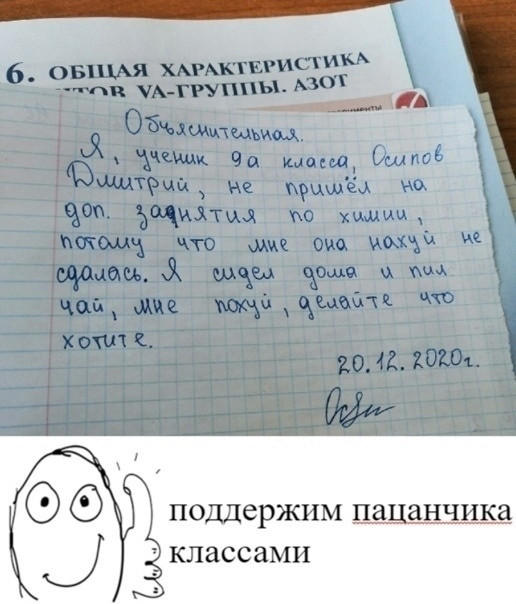 6. ОБЩАЯ ХАРАКТЕРИСТИКА
НТОВ VA-ГРУППЫ. АЗОТ
Объяснительная.
Я, ученик 9а класса, Осипов
Дмитрий, не пришёл на
доп. заднятия по химии,
потому что мне она нахуй не
сдалась. Я сидел дома и пил
чай, мне похуй, делайте что
хотите.
20.12.2020г.
поддержим пацанчика
классами